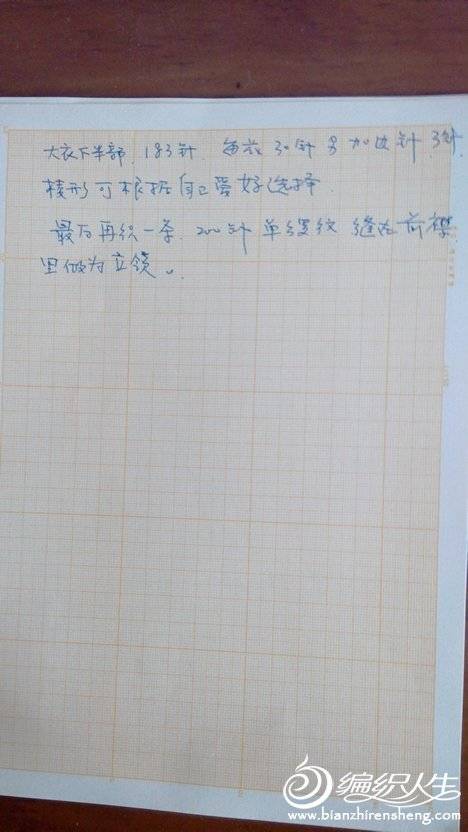 大衣下半部 183针. 每花30针另加边针3针.
棱形可根据自己爱好选择.
最后再织一条 200针 单缧纹 缝在前襟
里做为立领。
编织人生
www.bianzhirensheng.com